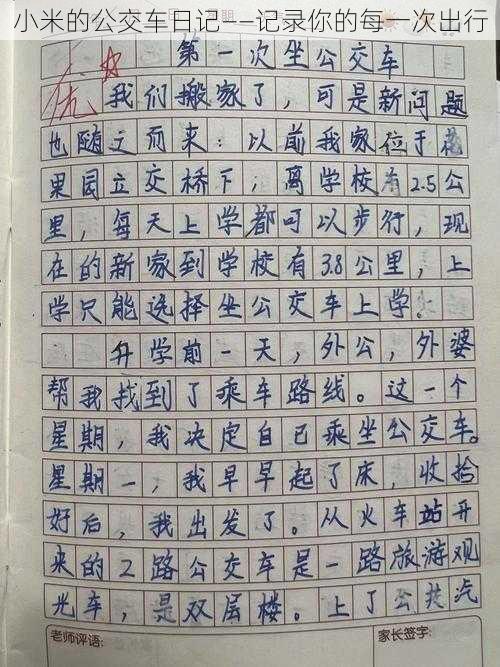 小米的公交车日记——记录你的每一次出行
优
第一次坐公交车
我们搬家了，可是新问题
也随之而来：以前我家位于花
果园立交桥下，离学校有2.5公
里，每天上学都可以步行，现
在的新家到学校有3.8公里，上
学只能选择坐公交车上学。
升学前一天，外公，外婆
帮我找到了乘车路线。这一个
星期，我决定自己乘坐公交车。
星期一，我早早起了床，收拾
好后，我出发了。从火车站开
来的2路公交车是一路旅游观
光车，是双层楼。上了公共汽
老师评语：
家长签字：